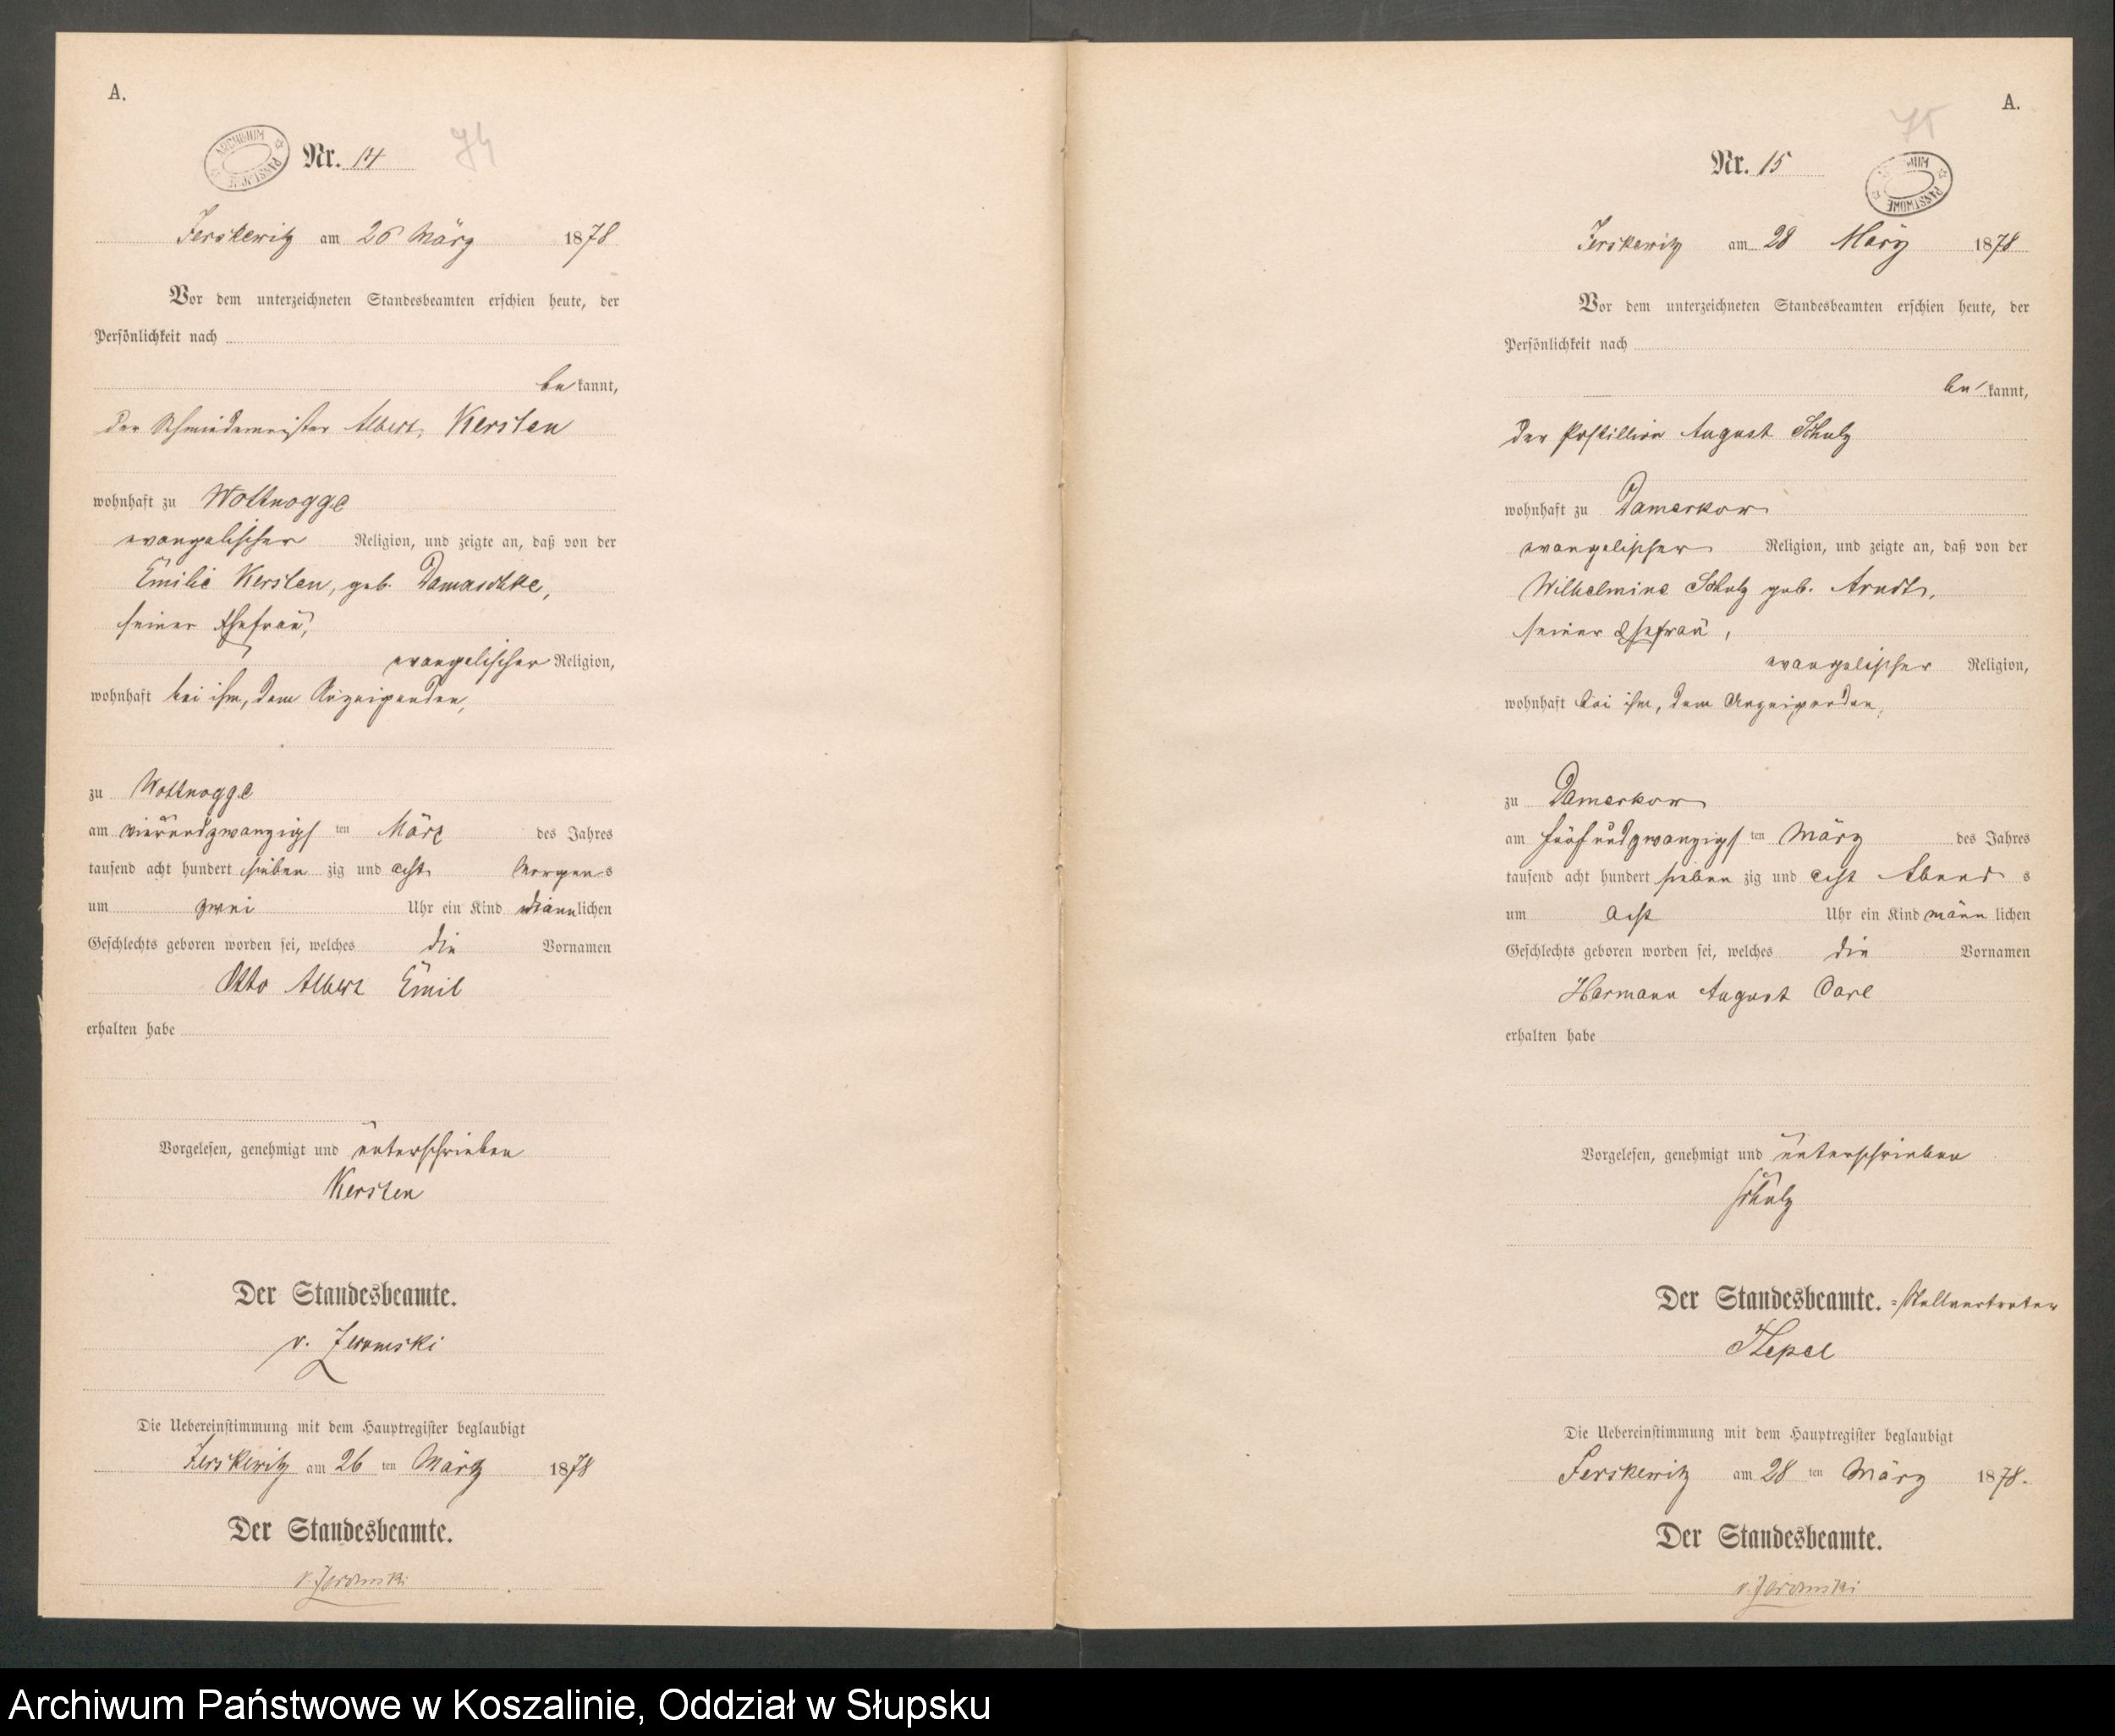 A.
Nr. 14
74
ARCHIWUM PAŃSTWOWE
Jerskewitz am 26 März 1878
Vor dem unterzeichneten Standesbeamten erschien heute, der
Persönlichkeit nach
bekannt,
der Schmiedemeister Albert Kersten
wohnhaft zu Wottnogge
evangelischer Religion, und zeigte an, daß von der
Emilie Kersten, geb. Damaschke,
seiner Ehefrau,
evangelischer Religion,
wohnhaft bei ihm, dem Anzeigenden,
zu Wottnogge
am vierundzwanzigsten März des Jahres
tausend acht hundert siebenzig und acht Morgens
um zwei Uhr ein Kind männlichen
Geschlechts geboren worden sei, welches die Vornamen
Otto Albert Emil
erhalten habe
Vorgelesen, genehmigt und unterschrieben
Kersten
Der Standesbeamte.
v. Zeromski
Die Uebereinstimmung mit dem Hauptregister beglaubigt
Jerskewitz am 26 ten März 1878
Der Standesbeamte.
v. Zeromski
A.
75
Nr. 15
ARCHIWUM PAŃSTWOWE
Jerskewitz am 28 März 1878
Vor dem unterzeichneten Standesbeamten erschien heute, der
Persönlichkeit nach
bekannt,
der Postillion August Schulz
wohnhaft zu Damerkow
evangelischer Religion, und zeigte an, daß von der
Wilhelmine Schulz geb. Arndt,
seiner Ehefrau,
evangelischer Religion,
wohnhaft bei ihm, dem Anzeigenden,
zu Damerkow
am fünfundzwanzigsten März des Jahres
tausend acht hundert siebenzig und acht Abends
um acht Uhr ein Kind männlichen
Geschlechts geboren worden sei, welches die Vornamen
Hermann August Carl
erhalten habe
Vorgelesen, genehmigt und unterschrieben
Schulz
Der Standesbeamte.=Stellvertreter
Der Standesbeamte.
Die Uebereinstimmung mit dem Hauptregister beglaubigt
Jerskewitz am 28 ten März 1878.
v. Zeromski
Archiwum Państwowe w Koszalinie, Oddział w Słupsku